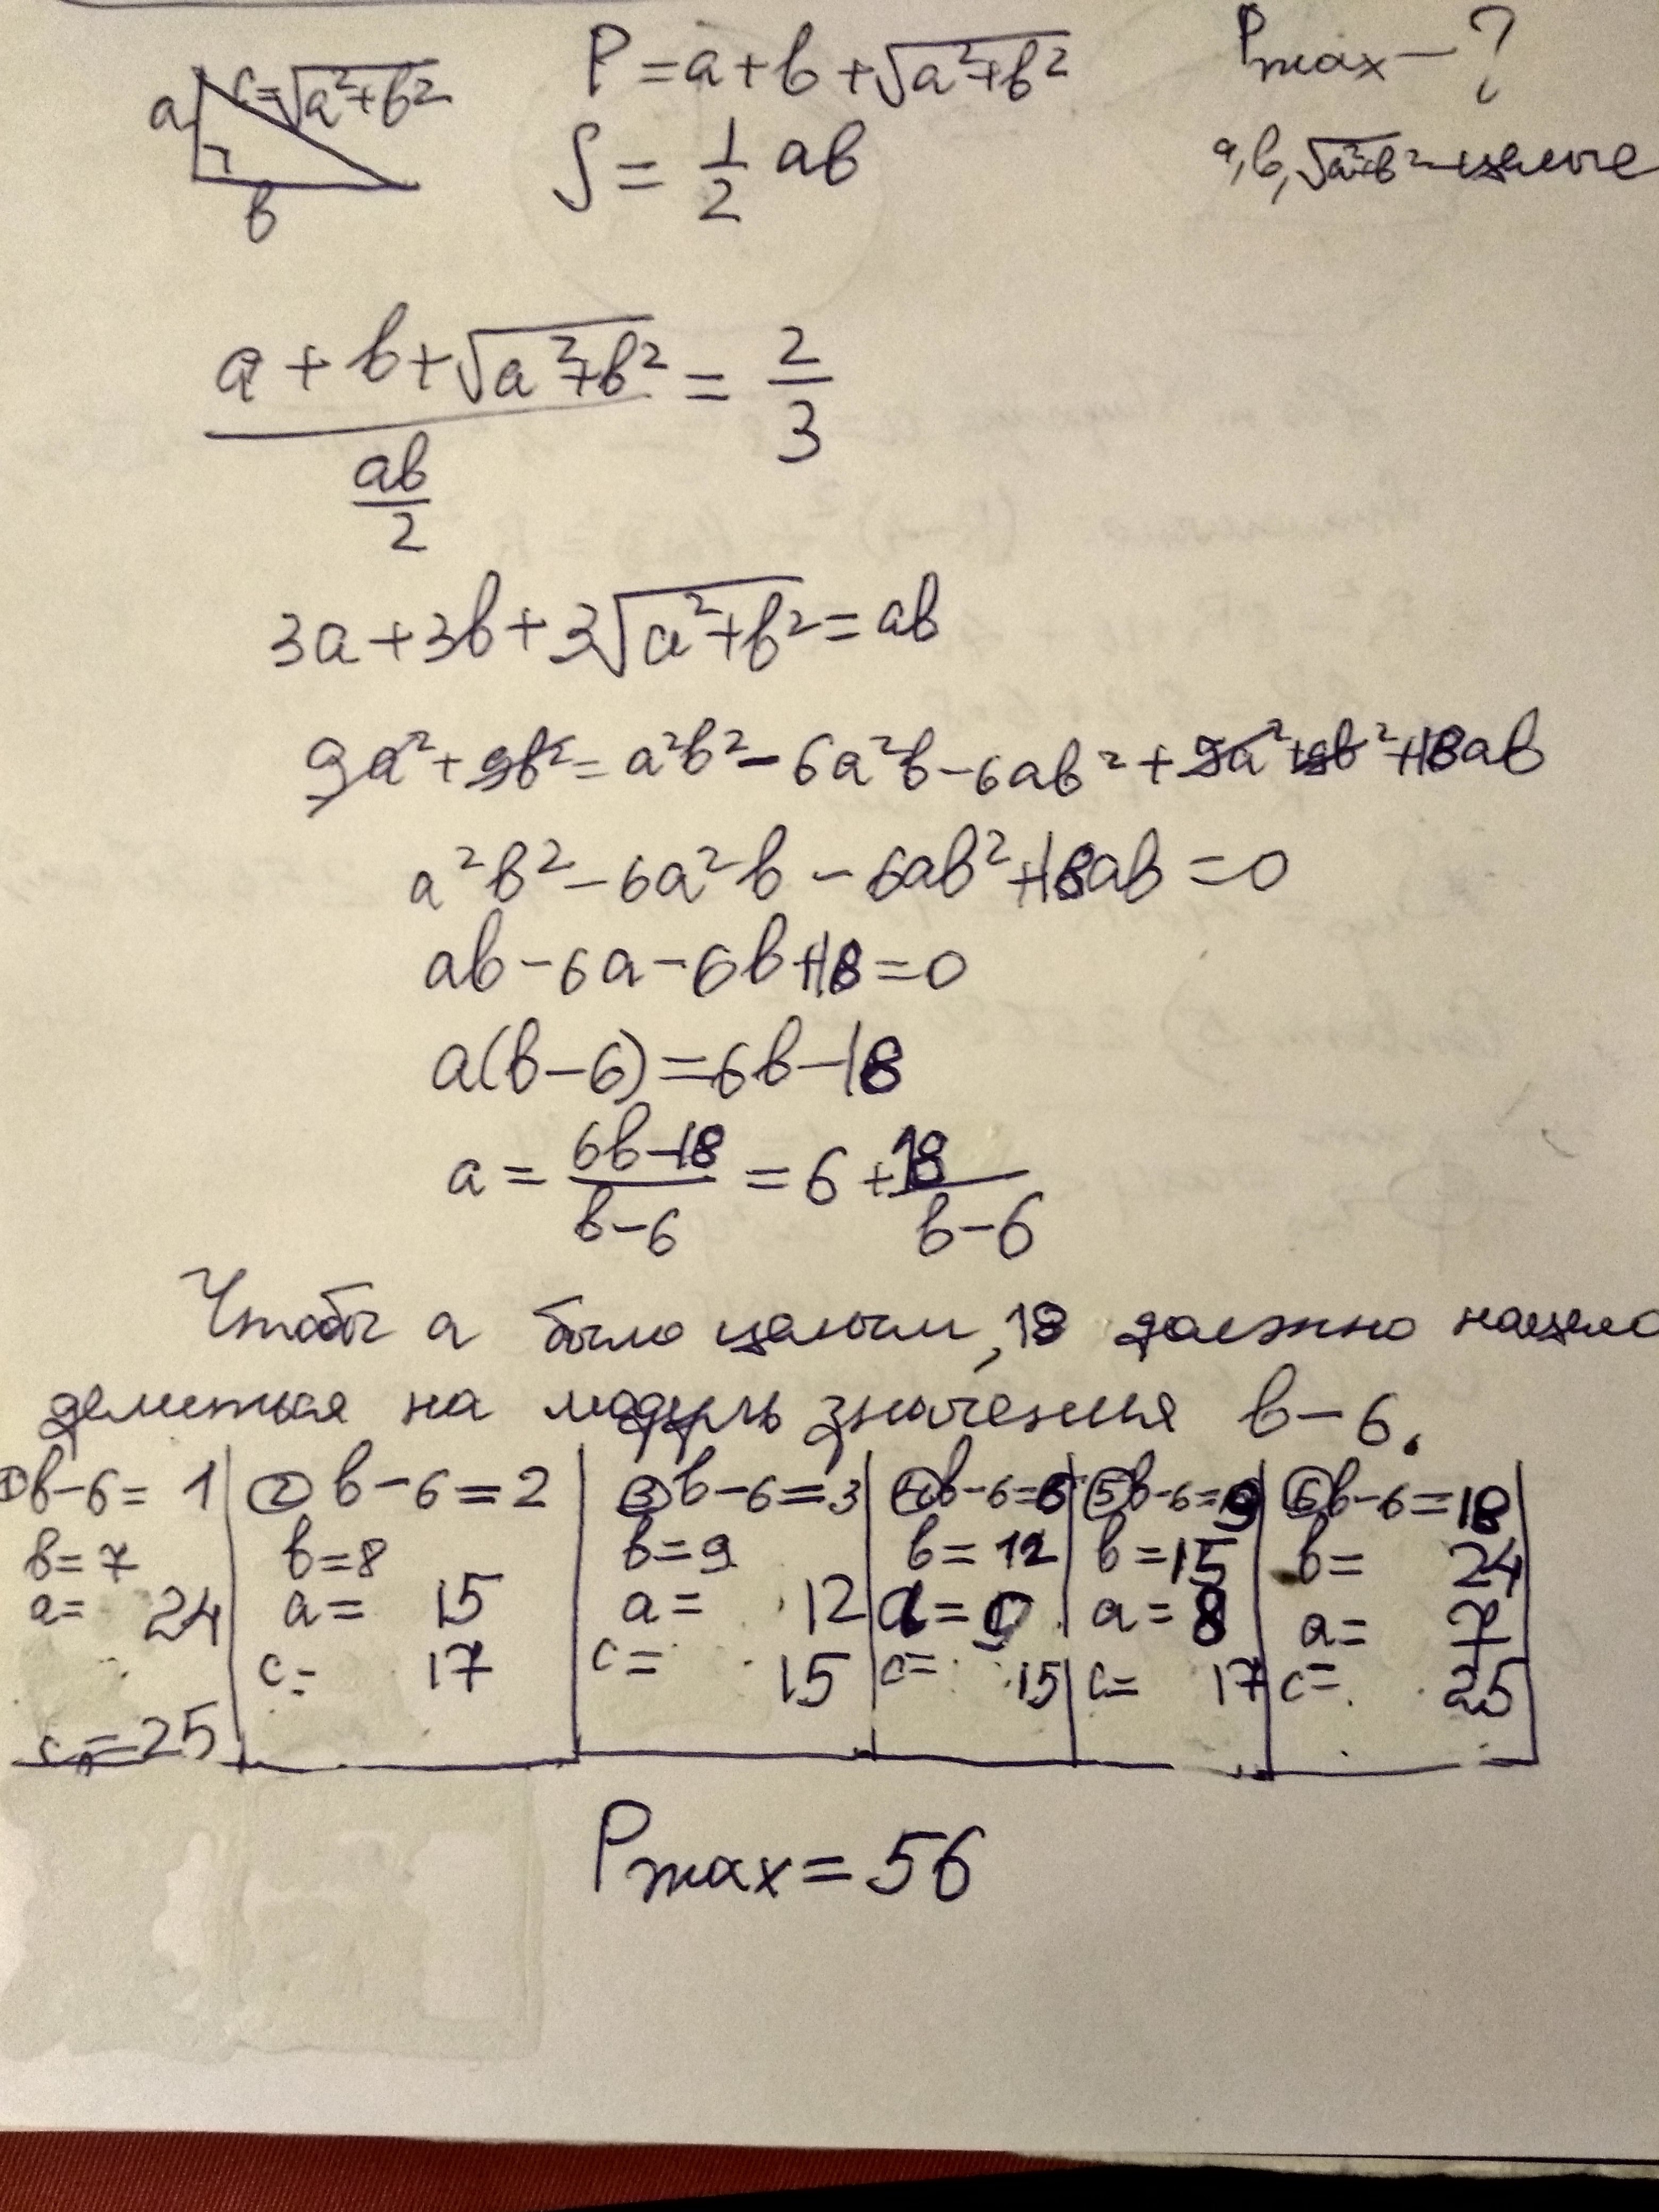 a c=√(a²+b²) b
P = a + b + √(a²+b²)
S = 1/2 ab
Pmax — ?
a, b, √(a²+b²) – целые
(a + b + √(a²+b²)) / (ab/2) = 2/3
3a + 3b + 3√(a²+b²) = ab
9a² + 9b² = a²b² - 6a²b - 6ab² + 9a² + 9b² + 18ab
a²b² - 6a²b - 6ab² + 18ab = 0
ab - 6a - 6b + 18 = 0
a(b-6) = 6b - 18
a = (6b-18)/(b-6) = 6 + 18/(b-6)
Чтобы a было целым, 18 должно нацело
делиться на модуль значения b-6.
① b-6=1 | ② b-6=2 | ③ b-6=3 | ④ b-6=6 | ⑤ b-6=9 | ⑥ b-6=18
b=7 | b=8 | b=9 | b=12 | b=15 | b=24
a=24 | a=15 | a=12 | a=9 | a=8 | a=7
c=25 | c=17 | c=15 | c=15 | c=17 | c=25
Pmax = 56